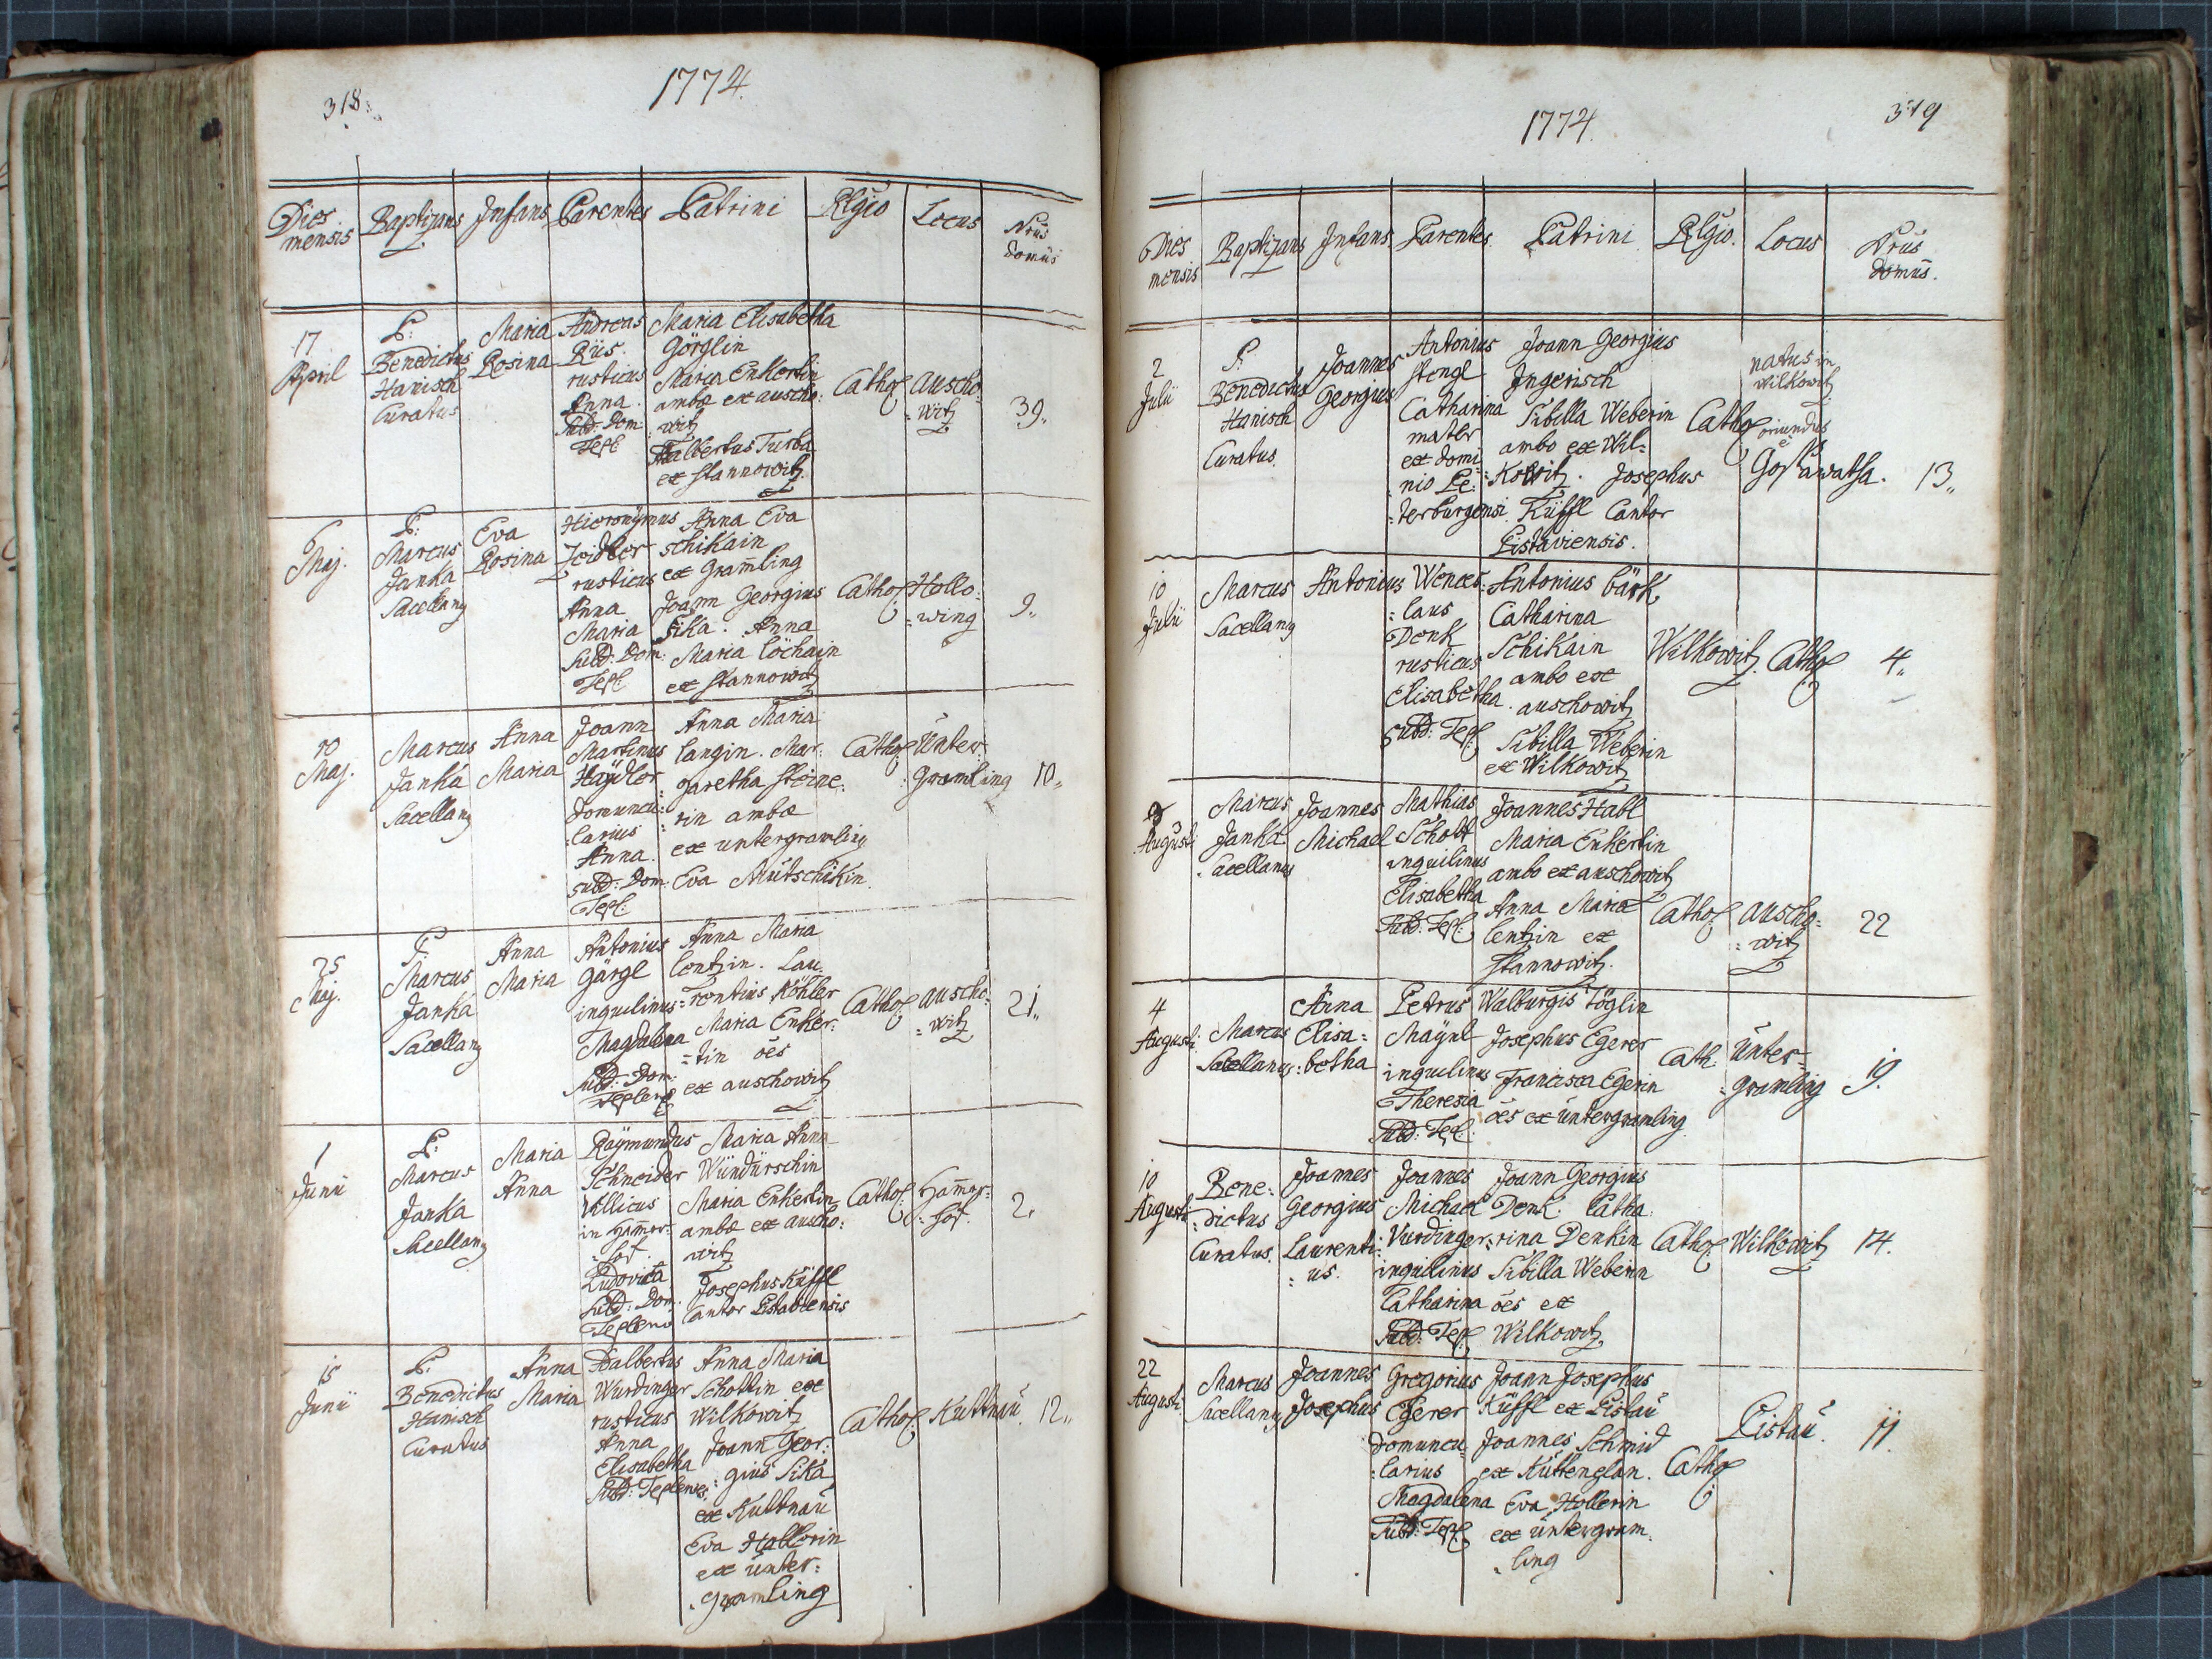 318.
1774.
Dies mensis Baptizans Infans Parentes Patrini Rlgio Locus Nrus domus
17 April
P: Benedictus Hanisch Curatus
Maria Rosina
Andreas
Riis.
rusticus
Anna.
Subd: Dom:
Tepl:
Maria Elisabetha
Görglin
Maria Enkertin
ambæ ex auscho:
witz
Adalbertus Turba
ex stannowitz
Cathol
auscho:
:witz
39.
6
Maj.
P:
Marcus
Janka
Sacellang
Eva
Rosina
Hieronymus
Zeidler
rusticus
Anna
Maria
Subd: Dom:
Tepl:
Anna Eva
schikain
ex Gramling
Joann Georgius
sika. Anna
Maria löchain
ex stannowitz
Cathol
Hollo:
:wing
9.
10
Maj.
Marcus
Janka
Sacellang
Anna
Maria
Joann
Martinus
Haÿdler
domuncu:
:larius
Anna.
subd: Dom:
Tepl:
Anna Maria
langin. Mar:
:garetha steine:
:rin ambæ
ex untergramling
Eva Mutschikin.
Cathol
Unter:
:gramling
10.
25
Maj.
P:
Marcus
Janka
Sacellang
Anna
Maria
Antonius
Görgl
inquilinus
Magdalena
Subd: Dom:
Teplens
Anna Maria
lentzin. Lau:
:rentius Köhler
Maria Enker:
:tin oēs
ex auschowitz
Cathol
auscho:
:witz
21.
1
Junii
P:
Marcus
Janka
Sacellang
Maria
Anna
Raÿmundus
Schneider
Villicus
in Ham̄er:
:hof.
Ludovica
Subd: Dom:
Teplens
Maria Anna
Wundürschin
Maria Enkertin
ambæ ex auscho:
witz
Josephus Küffl
Cantor Pistaviensis
Cathol
Ham̄er:
:hof.
2.
15
Junii
P:
Benedictus
Hanisch
Curatus
Anna
Maria
Adalbertus
Wurdinger
rusticus
Anna
Elisabetha
Subd: Teplens:
Anna Maria
Schottin ex
Wilkowitz
Joann Geor:
:gius Sika
ex Kuttnau
Eva Hallerin
ex unter:
:gramling
Cathol
Kuttnau.
12.
319
1774.
Dies mensis Baptizans Infans Parentes Patrini Rlgio. Locus Nrus domus.
2
Julii
P:
Benedictus
Hanisch
Curatus.
Joannes
Georgius
Antonius
stengl
Catharina
mater
ex domi:
:nio Pe:
:terburgensi
Joann Georgius
Ingerisch
Sibilla Weberin
ambo ex Wil:
:kowitz. Josephus
Küffl Cantor
Pistaviensis.
Cathol
natus in
wilkowitz
oriundus
è
13.
10
Julii
Marcus
Sacellang
Antonius
Wences:
:laus
Denk
rusticus
Elisabetha.
subd: Tepl:
Antonius bärtl
Catharina
Schikain
ambo ex
auschowitz
Sibilla Weberin
ex Wilkowitz
Wilkowitz
Cathol
4.
Augusti
Marcus
Janka
Sacellanus
Joannes
Michael
Mathias
Schott
inquilinus
Elisabetha
Subd: Tepl:
Joannes Habl
Maria Enkertin
ambo ex auschowitz
Anna Maria
lentzin ex
stannowitz.
Cathol
auscho:
:witz
22
4
Augusti
Marcus
Sacellanus
Anna
Elisa:
:betha
Petrus
Maÿnl
inquilinus
Theresia
Subd: Tepl:
Walburgis Töglin
Josephus Egerer
Francisca Egerin
oēs ex untergramling.
Cath:
Unter:
:gramling
19.
10
Augusti
Bene:
:dictus
Curatus.
Joannes
Georgius
Laurenti:
:us.
Joannes
Michael
Wurdinger
inquilinus
Catharina
Subd: Tepl:
Joann Georgius
Denk. Catha:
:rina Denkin
Sibilla Weberin
oēs ex
Wilkowitz
Cathol
Wilkowitz
14.
22
Augusti
Marcus
Sacellanus
Joannes
Josephus
Gregorius
Egerer
domuncu:
:larius
Magdalena
Subd: Tepl:
Joann Josephus
Küffl ex Pistau
Joannes Schmid
ex Kuttenplan.
Eva Hollerin
ex untergram:
:ling
Cathol
Pistau.
11.